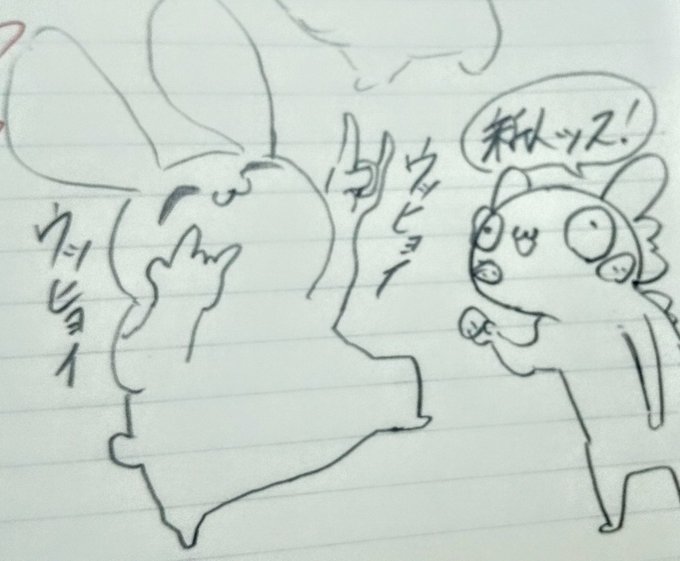 ウッヒョイ
ウッヒョイ
新人ッス!